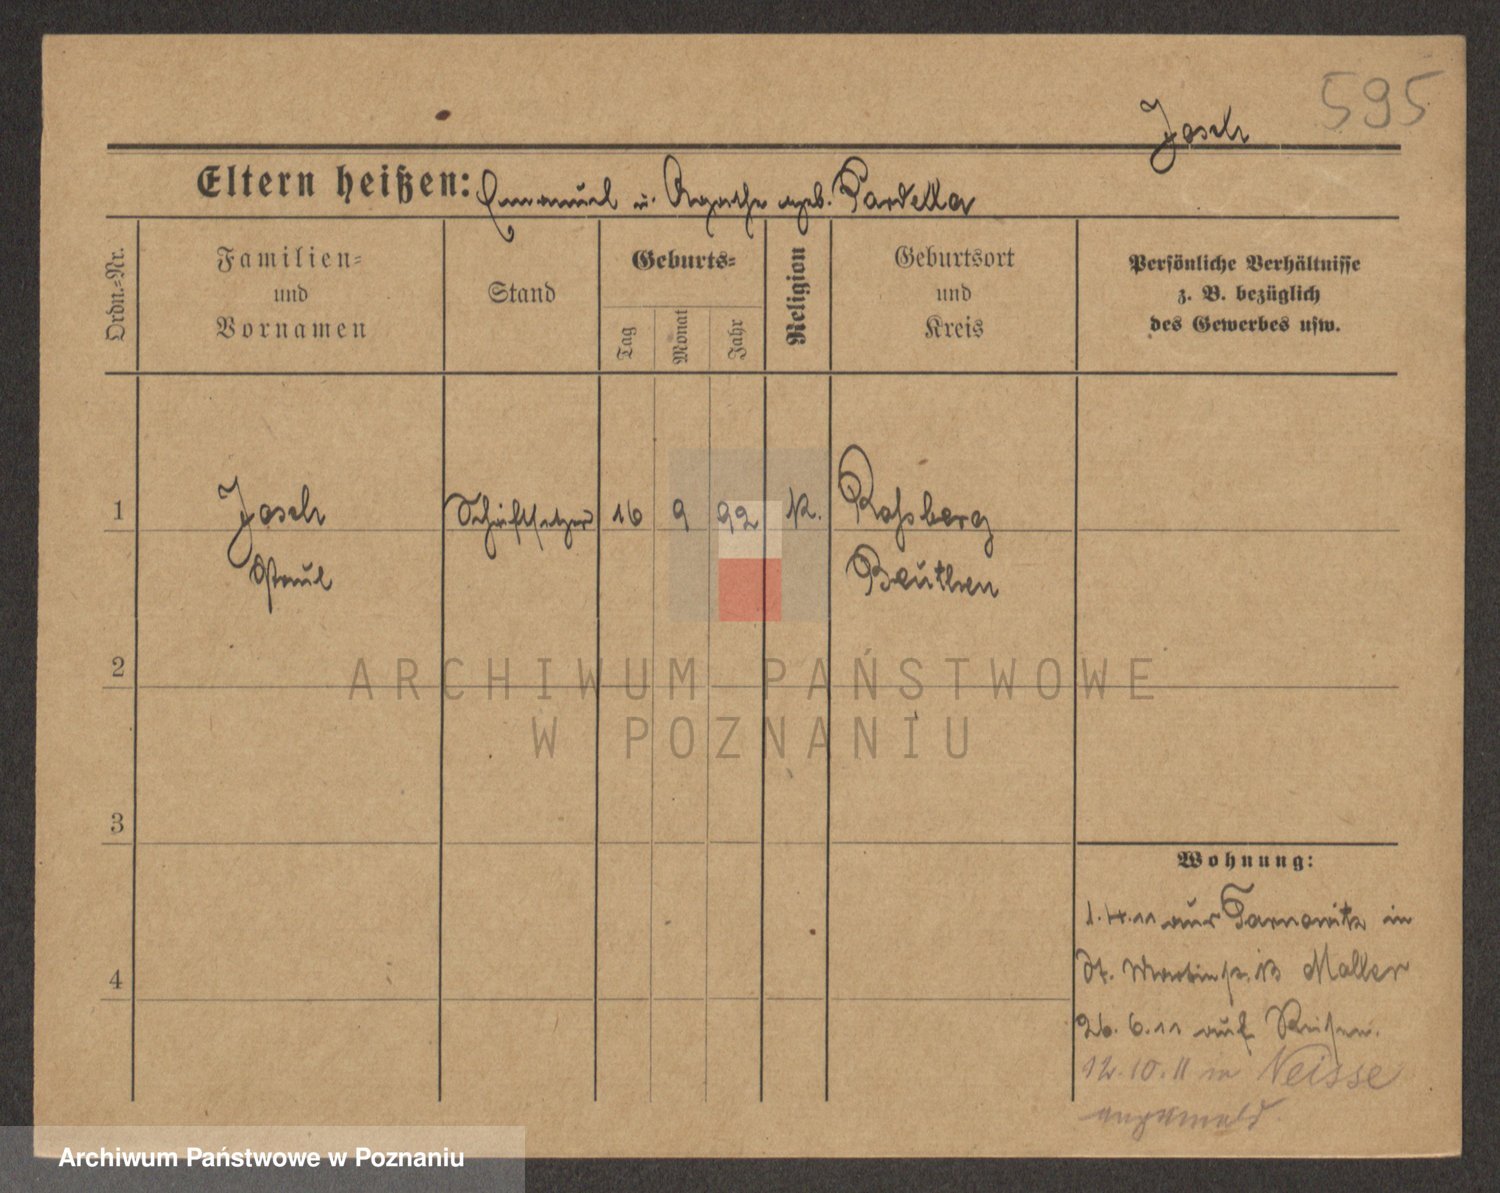 595
Josek
Eltern heißen: Emanuel u. Agathe geb. Pardella
Ordn.-Nr.
Familien-
und
Vornamen
Stand
Geburts-
Tag
Monat
Jahr
Religion
Geburtsort
und
Kreis
Persönliche Verhältnisse
z. B. bezüglich
des Gewerbes usw.
1 Josek Schriftsetzer 16 9 92 K. Roßberg
Paul Beuthen
2
ARCHIWUM PAŃSTWOWE
W POZNANIU
3
Wohnung:
1.4.11 aus Tarnowitz in
St. Martinstr. 13 Maller
4
26.6.11 auf Reisen.
12.10.11 in Neisse
angemeld.
Archiwum Państwowe w Poznaniu